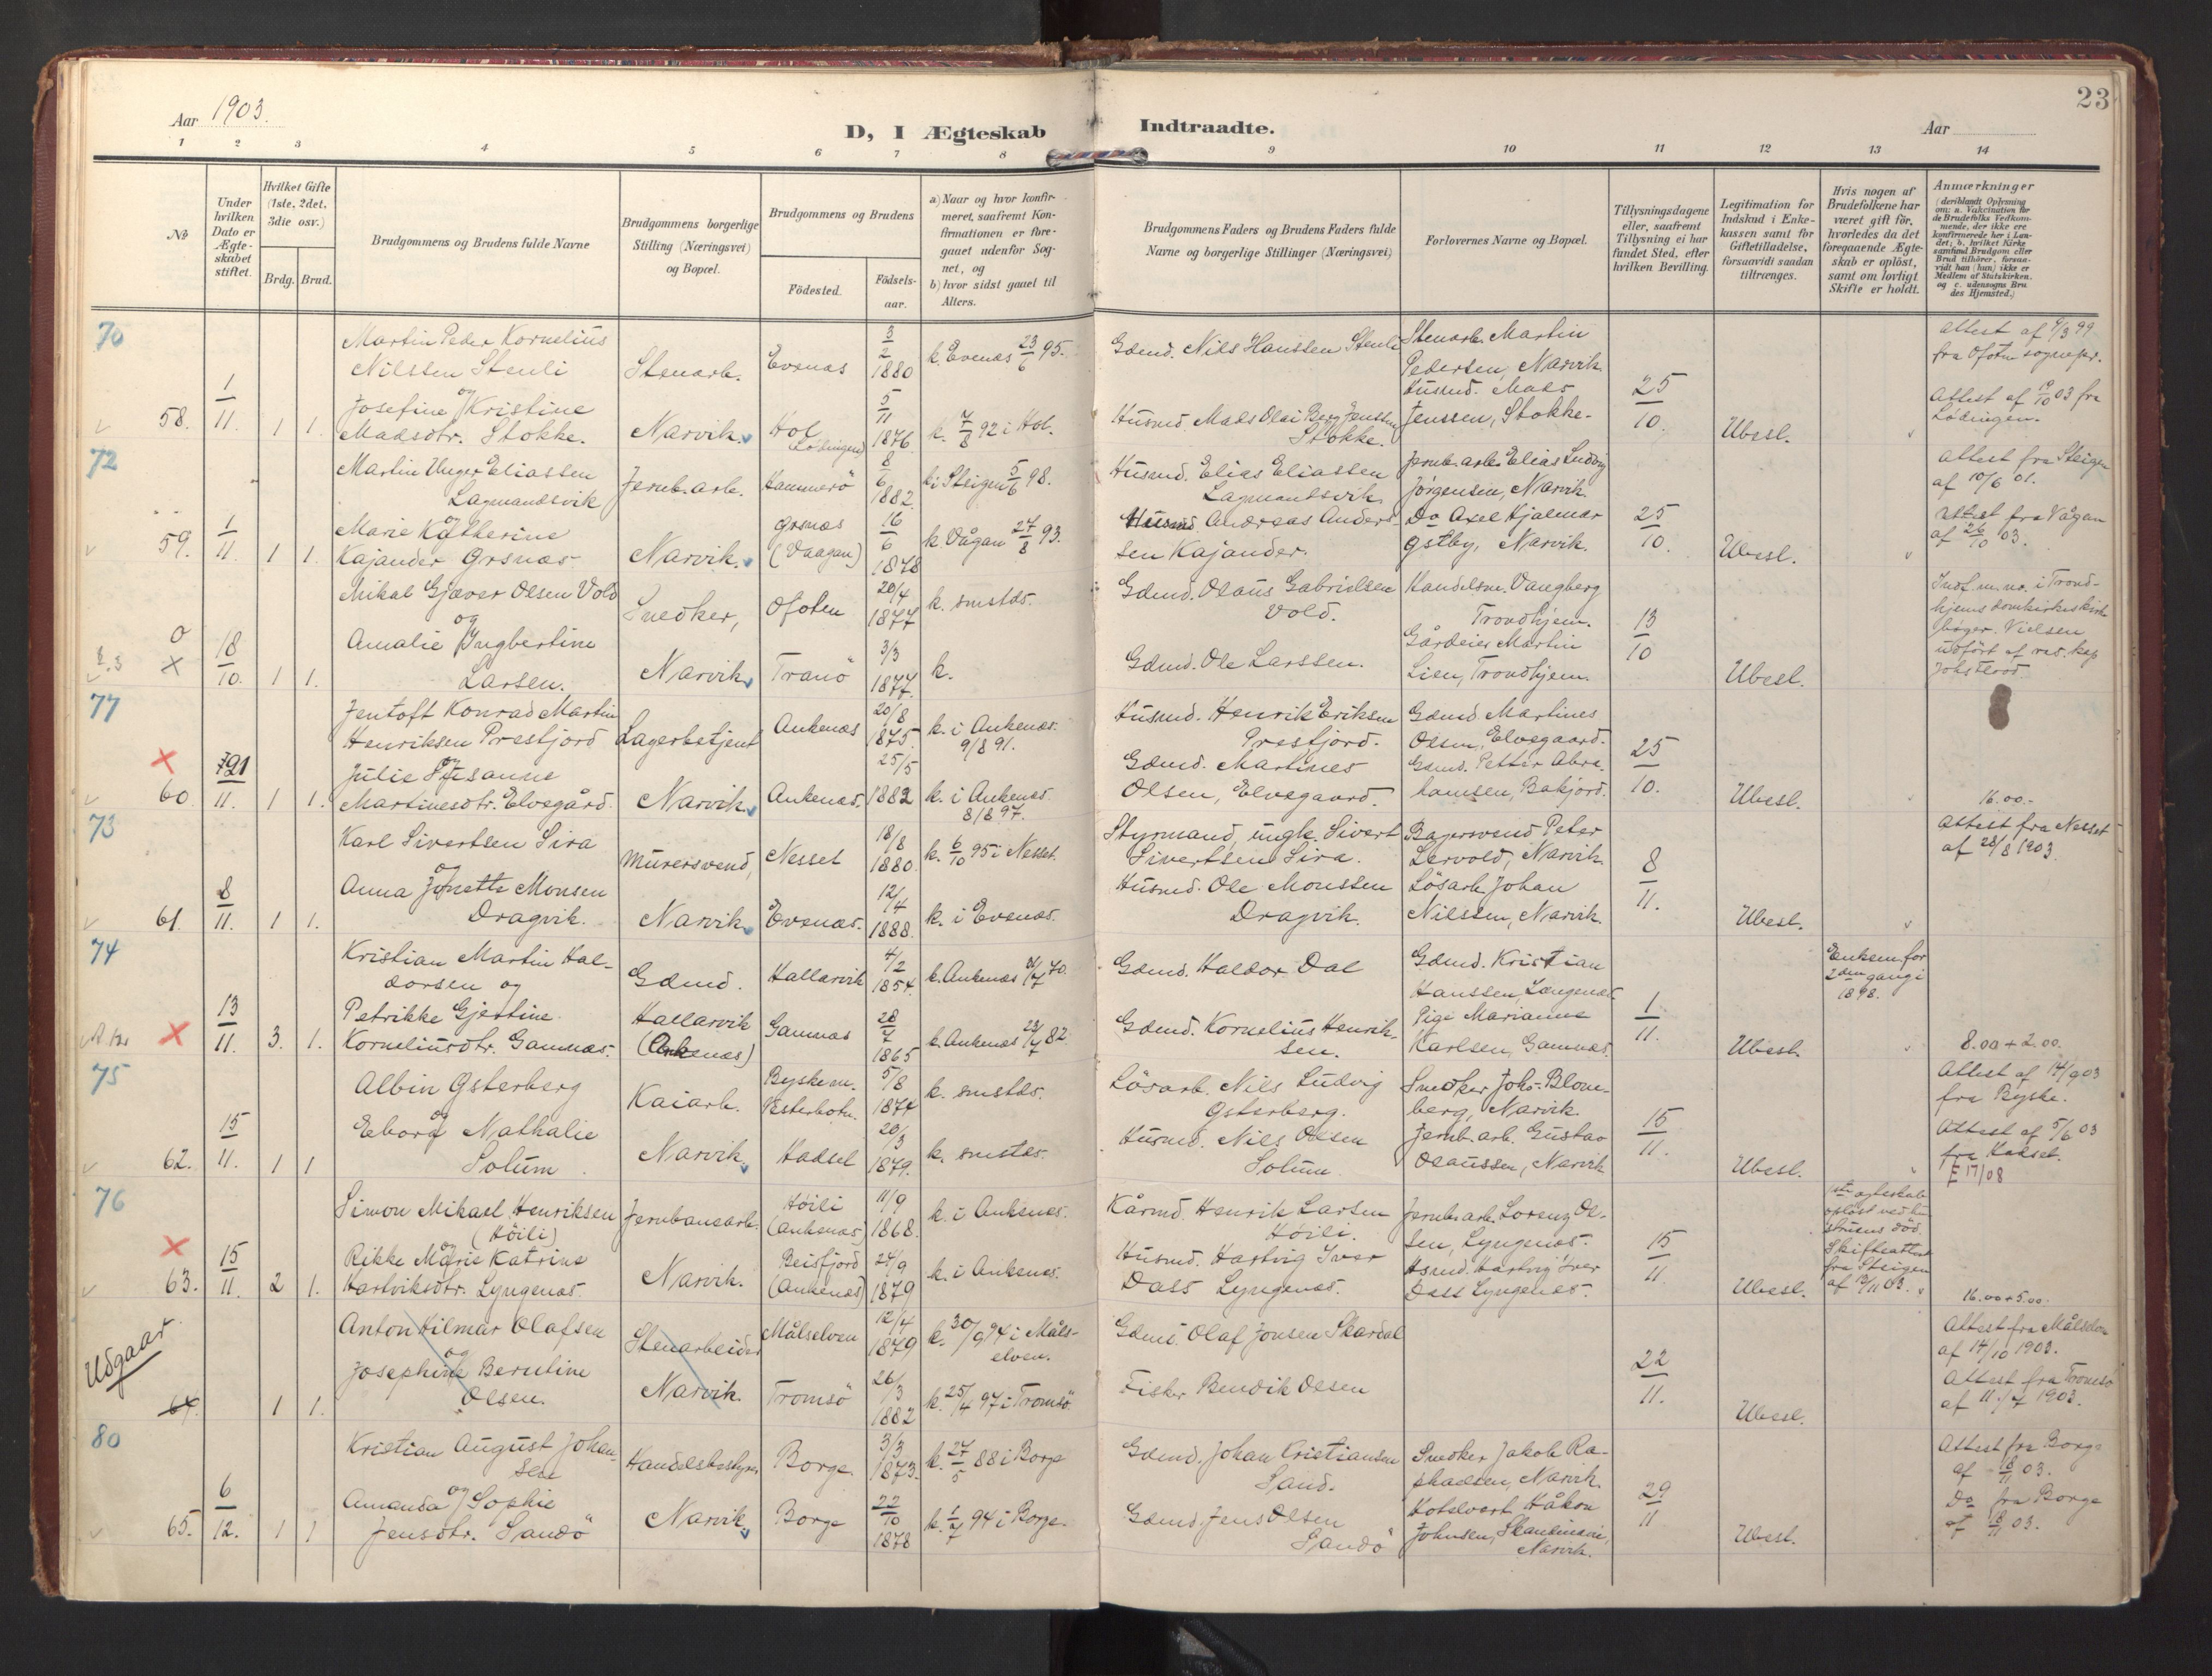 23
Aar 1903.
D, I Ægteskab Indtraadte.
Aar
1 2 3 4 5 6 7 8 9 10 11 12 13 14
№
Under hvilken Dato er Ægteskabet stiftet.
Hvilket Gifte (1ste, 2det, 3die osv.)
Brdg. Brud.
Brudgommens og Brudens fulde Navne
Brudgommens borgerlige Stilling (Næringsvei) og Bopæl.
Brudgommens og Brudens
Födested.
Födselsaar.
a) Naar og hvor konfirmeret, saafremt Konfirmationen er foregaaet udenfor Sognet, og
b) hvor sidst gaaet til Alters.
Brudgommens Faders og Brudens Faders fulde Navne og borgerlige Stillinger (Næringsvei)
Forlovernes Navne og Bopæl.
Tillysningsdagene eller, saafremt Tillysning ei har fundet Sted, efter hvilken Bevilling.
Legitimation for Indskud i Enkekassen samt for Giftetilladelse, forsaavidt saadan tiltrænges.
Hvis nogen af Brudefolkene har været gift för, hvorledes da det foregaaende Ægteskab er oplöst, samt om lovligt Skifte er holdt.
Anmærkninger
(deriblandt Oplysning om: a. Vakcination for de Brudefolks Vedkommende, der ikke ere konfirmerede her i Landet; b. hvilket Kirkesamfund Brudgom eller Brud tilhörer, forsaavidt han (hun) ikke er Medlem af Statskirken. og c. udensogns Brudes Hjemsted.)
70
58. 1/11. 1 1.
Martin Peder Kornelius
Nilssen Stenli
og
Josefine Kristine
Madsdtr. Stokke.
Stenarb.
Narvik.
Evenæs 3/2 1880 k. Evenæs 23/6 95.
Hol (Lødingen) 5/11 1876 k. 7/8 92 i Hol.
Gdmd. Nils Hanssen Stenli
Husmd. Mads Olai Berg Jenssen
Stokke.
Stenarb. Martin
Pedersen, Narvik
Husmd. Mads
Jenssen, Stokke.
25/10.
Ubesl.
Attest af 9/3 99
fra Ofoten sognepr.
Attest af 19/10 03 fra
Lødingen.
72
59. 1/11. 1 1.
Martin Unger Eliassen
Lagmandsvik
og
Marie Katherine
Kajander Grsnæs
Jernb.arb.
Narvik.
Hammerö 8/6 1882. k i Steigen 5/6 98.
Grsnæs (Vaagan) 16/6 1878 k. Vågan 27/8 93.
Husmd. Elias Eliassen
Lagmandsvik.
Husmd Andreas Anders-
sen Kajander.
Jernb.arb. Elias Ludvig
Jørgensen, Narvik.
Do Axel Hjalmar
Østby, Narvik.
25/10.
Ubesl.
Attest fra Steigen
af 10/6 01.
Attest fra Vågan
af 26/10 03.
18/10. 1 1.
Mikal Gjæver Olsen Vold
og
Amalie Ingbertine
Larsen.
Snedker,
Narvik
Ofoten 20/4 1877 k. smstds.
Tranö 3/3 1877. k.
Gdmd. Olaus Gabrielsen
Vold.
Gdmd. Ole Larssen.
Handelsm. Vangberg
Trondhjem.
Gårdeier Martin
Lien, Trondhjem.
13/10
Ubesl.
Indf. u. no. i Trond-
hjems domkirkes kirke-
bøger. Vielsen
udført af res. kap
77
60. 21/11. 1 1.
Jentoft Konrad Martin
Henriksen Prestjord
og
Julie Susanne
Martinesdtr. Elvegård.
Lagerbetjent
Narvik
Ankenæs 20/8 1875. k. i Ankenæs. 9/8 91.
Ankenæs. 25/5 1882 k. i Ankenæs. 8/8 97.
Husmd. Henrik Eriksen
Prestjord.
Gdmd. Martines
Olsen, Elvegaard.
Gdmd. Martines
Olsen, Elvegaard.
Gdmd. Petter Abra-
hamsen, Bakjord.
25/10.
Ubesl.
16.00.-
73
61. 8/11. 1 1.
Karl Sivertsen Sira
og
Anna Jonette Monsen
Dragvik.
Murersvend,
Narvik
Nesset 18/8 1880. k. 6/10 95 i Nesset.
Evenæs. 12/4 1888. k. i Evenæs.
Styrmand, ungk. Sivert
Sivertsen Sira.
Husmd. Ole Monssen
Dragvik.
Bagersvend Peter
Lervold, Narvik
Lösarb. Johan
Nilssen, Narvik.
8/11.
Ubesl.
Attest fra Nesset
af 28/8 1903.
74
13/11. 3. 1.
Kristian Martin Hal-
dorsen og
Petrikke Gjertine
Korneliusdtr. Gamnæs.
Gdmd.
Hallarvik
(Ankenæs)
Hallarvik 4/2 1854. k. Ankenæs 70.
Gamnæs 28/7 1865 k. Ankenæs 23/7 82.
Gdmd. Haldor Dal
Gdmd. Kornelius Henrik-
sen.
Gdmd. Kristian
Hanssen, Langenæs
Pige Marianne
Karlsen, Gamnæs.
1/11.
Ubesl.
Enkem. for
2den gang i
1898.
8.00 + 2.00.
75
62. 15/11. 1 1
Albin Østerberg
og
Eborg Nathalie
Solum.
Kaiarb.
Narvik
Byske in. Vesterbotn. 5/8 1874 k. smstds.
Hadsel 20/3 1879. k. smstds.
Lösarb. Nils Ludvig
Østerberg.
Husmd. Nils Olsen
Solum.
Snedker Johs. Blom-
berg, Narvik.
Jernb.arb. Gustav
Olaussen, Narvik
15/11.
Ubesl.
Attest af 14/9 03
fra Byske.
Attest af 5/6 03
fra Hadsel.
E 17/08
76
63. 15/11. 2 1.
Simon Mikael Henriksen
(Höili)
og
Rikke Marie Katrine
Hartviksdtr. Lyngenæs.
Jernbanearb.
Narvik.
Höili (Ankenæs) 11/9 1868. k. i Ankenæs.
Beisfjord (Ankenæs) 24/9 1879 k. i Ankenæs.
Kårmd. Henrik Larsen
Höili.
Husmd. Hartvig Iver
Dass Lyngenæs.
Jernb.arb. Lorenz Ol-
sen, Lyngenæs.
Hsmd. Hartvig Iver
Dass Lyngenæs.
15/11.
Ubesl.
1ste ægteskab
opløst ved hu-
struens død.
Skifteattest
fra Steigen
af 12/11 03.
16.00 + 5.00.
Udgaar
64. 1 1.
Anton Hilmar Olafsen
og
Josephine Berntine
Olsen.
Stenarbeider
Narvik.
Målselven 12/4 1879 k. 30/9 94 i Måls-
elven.
Tromsö 26/3 1882 k. 25/4 97 i Tromsö.
Gdmd. Olaf Jonsen Skardal
Fisker Bendik Olsen
22/11.
Ubesl.
Attest fra Målselven
af 14/10 1903.
Attest fra Tromsö
af 11./7 1903.
80
65. 6/12. 1 1
Kristian August Johan-
sen
og
Amanda Sophie
Jensdtr. Sandö
Handelsbestyrer
Narvik
Borge 3/3 1873. k. 27/5 88 i Borge
Borge 22/10 1878 k. 1/7 94 i Borge.
Gdmd. Johan Kristiansen
Sand.
Gdmd. Jens Olsen
Sandö
Snedker Jakob Ra-
phaelsen, Narvik.
Hotelvert Håkon
Johnsen, Skandinavia,
Narvik.
29/11
Ubesl.
Attest fra Borge
af 18/11 03.
Do fra Borge
af 18/11 03.